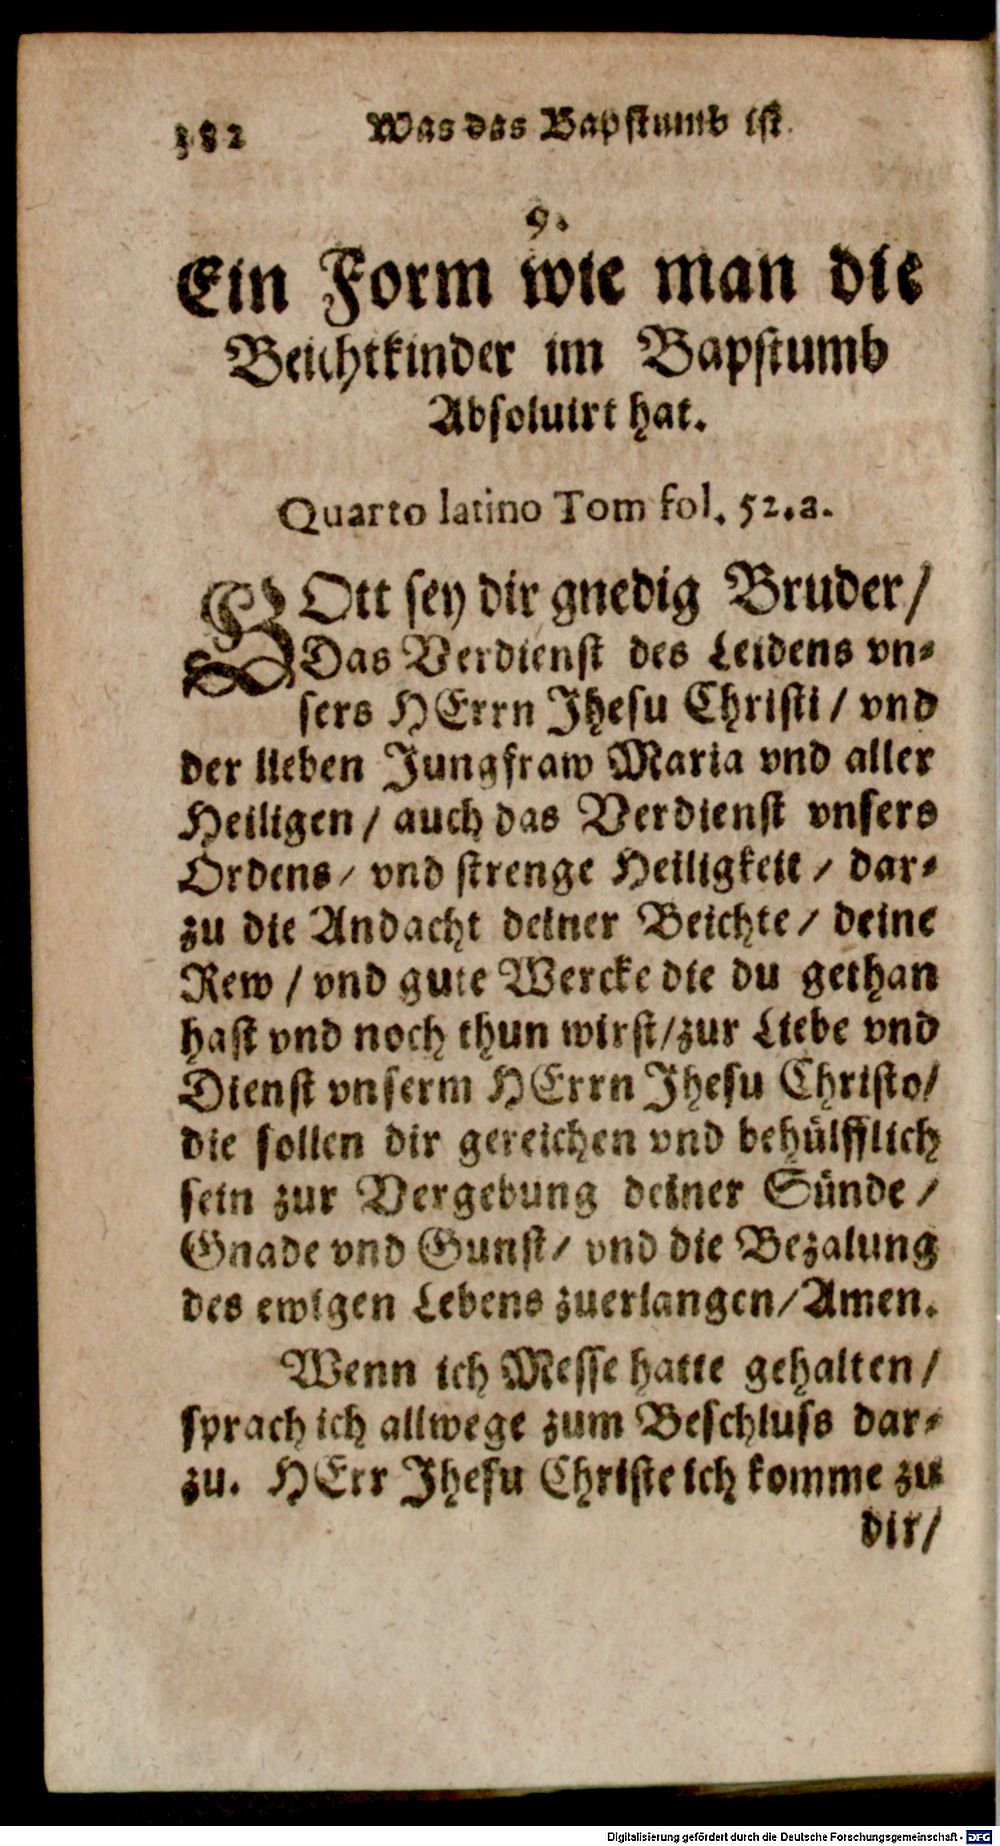 382 Was das Bapstumb ist
9.
Ein Form wie man die
Beichtkinder im Bapstumb
Absoluirt hat.
Quarto latino Tom fol. 52.a.
GOtt sey dir gnedig Bruder/
Das Verdienst des Leidens vn-
sers HErrn Jhesu Christi / vnd
der lieben Jungfraw Maria vnd aller
Heiligen / auch das Verdienst vnsers
Ordens/ vnd strenge Heiligkeit / dar-
zu die Andacht deiner Beichte/ deine
Rew / vnd gute Wercke die du gethan
hast vnd noch thun wirst/zur Liebe vnd
Dienst vnserm HErrn Jhesu Christo/
die sollen dir gereichen vnd behülfflich
sein zur Vergebung deiner Sünde /
Gnade vnd Gunst/ vnd die Bezalung
des ewigen Lebens zuerlangen/Amen.
Wenn ich Messe hatte gehalten/
sprach ich allwege zum Beschluss dar-
zu. HErr Jhesu Christe ich komme zu
dir/
Digitalisierung gefördert durch die Deutsche Forschungsgemeinschaft - DFG